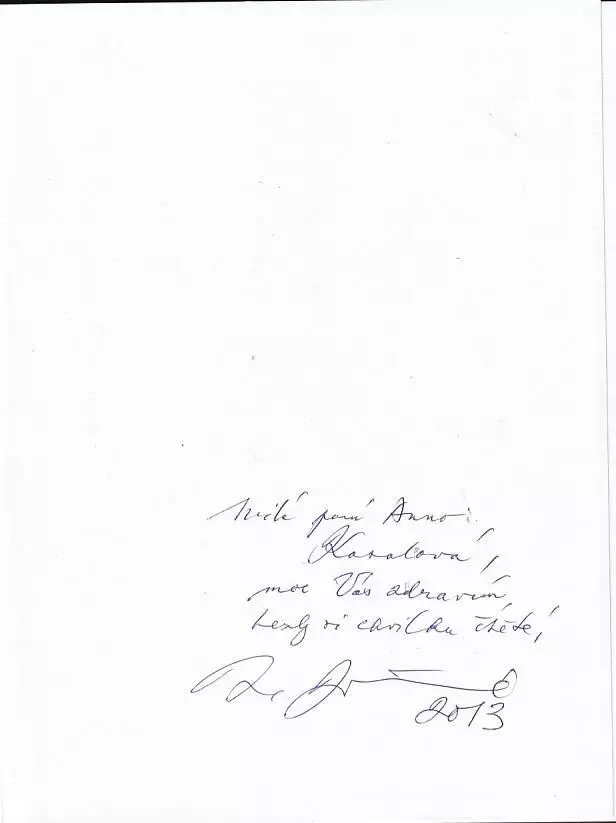 Milá paní Anno
Karalová,
moc Vás zdravím,
si chvilku
2013